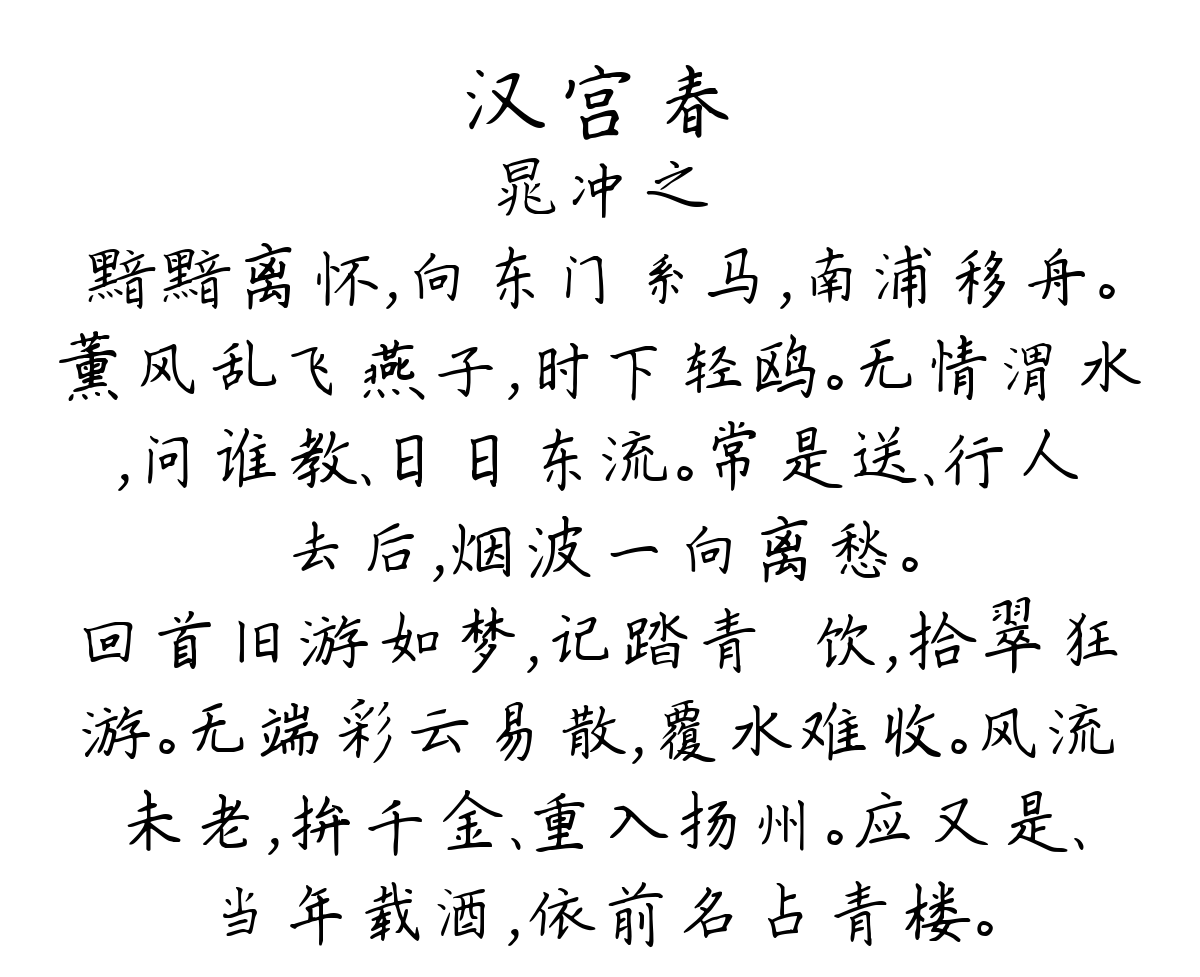 汉宫春
晁冲之
黯黯离怀,向东门系马,南浦移舟。
薰风乱飞燕子,时下轻鸥。无情渭水
,问谁教、日日东流。常是送、行人
去后,烟波一向离愁。
回首旧游如梦,记踏青 饮,拾翠狂
游。无端彩云易散,覆水难收。风流
未老,拚千金、重入扬州。应又是、
当年载酒,依前名占青楼。